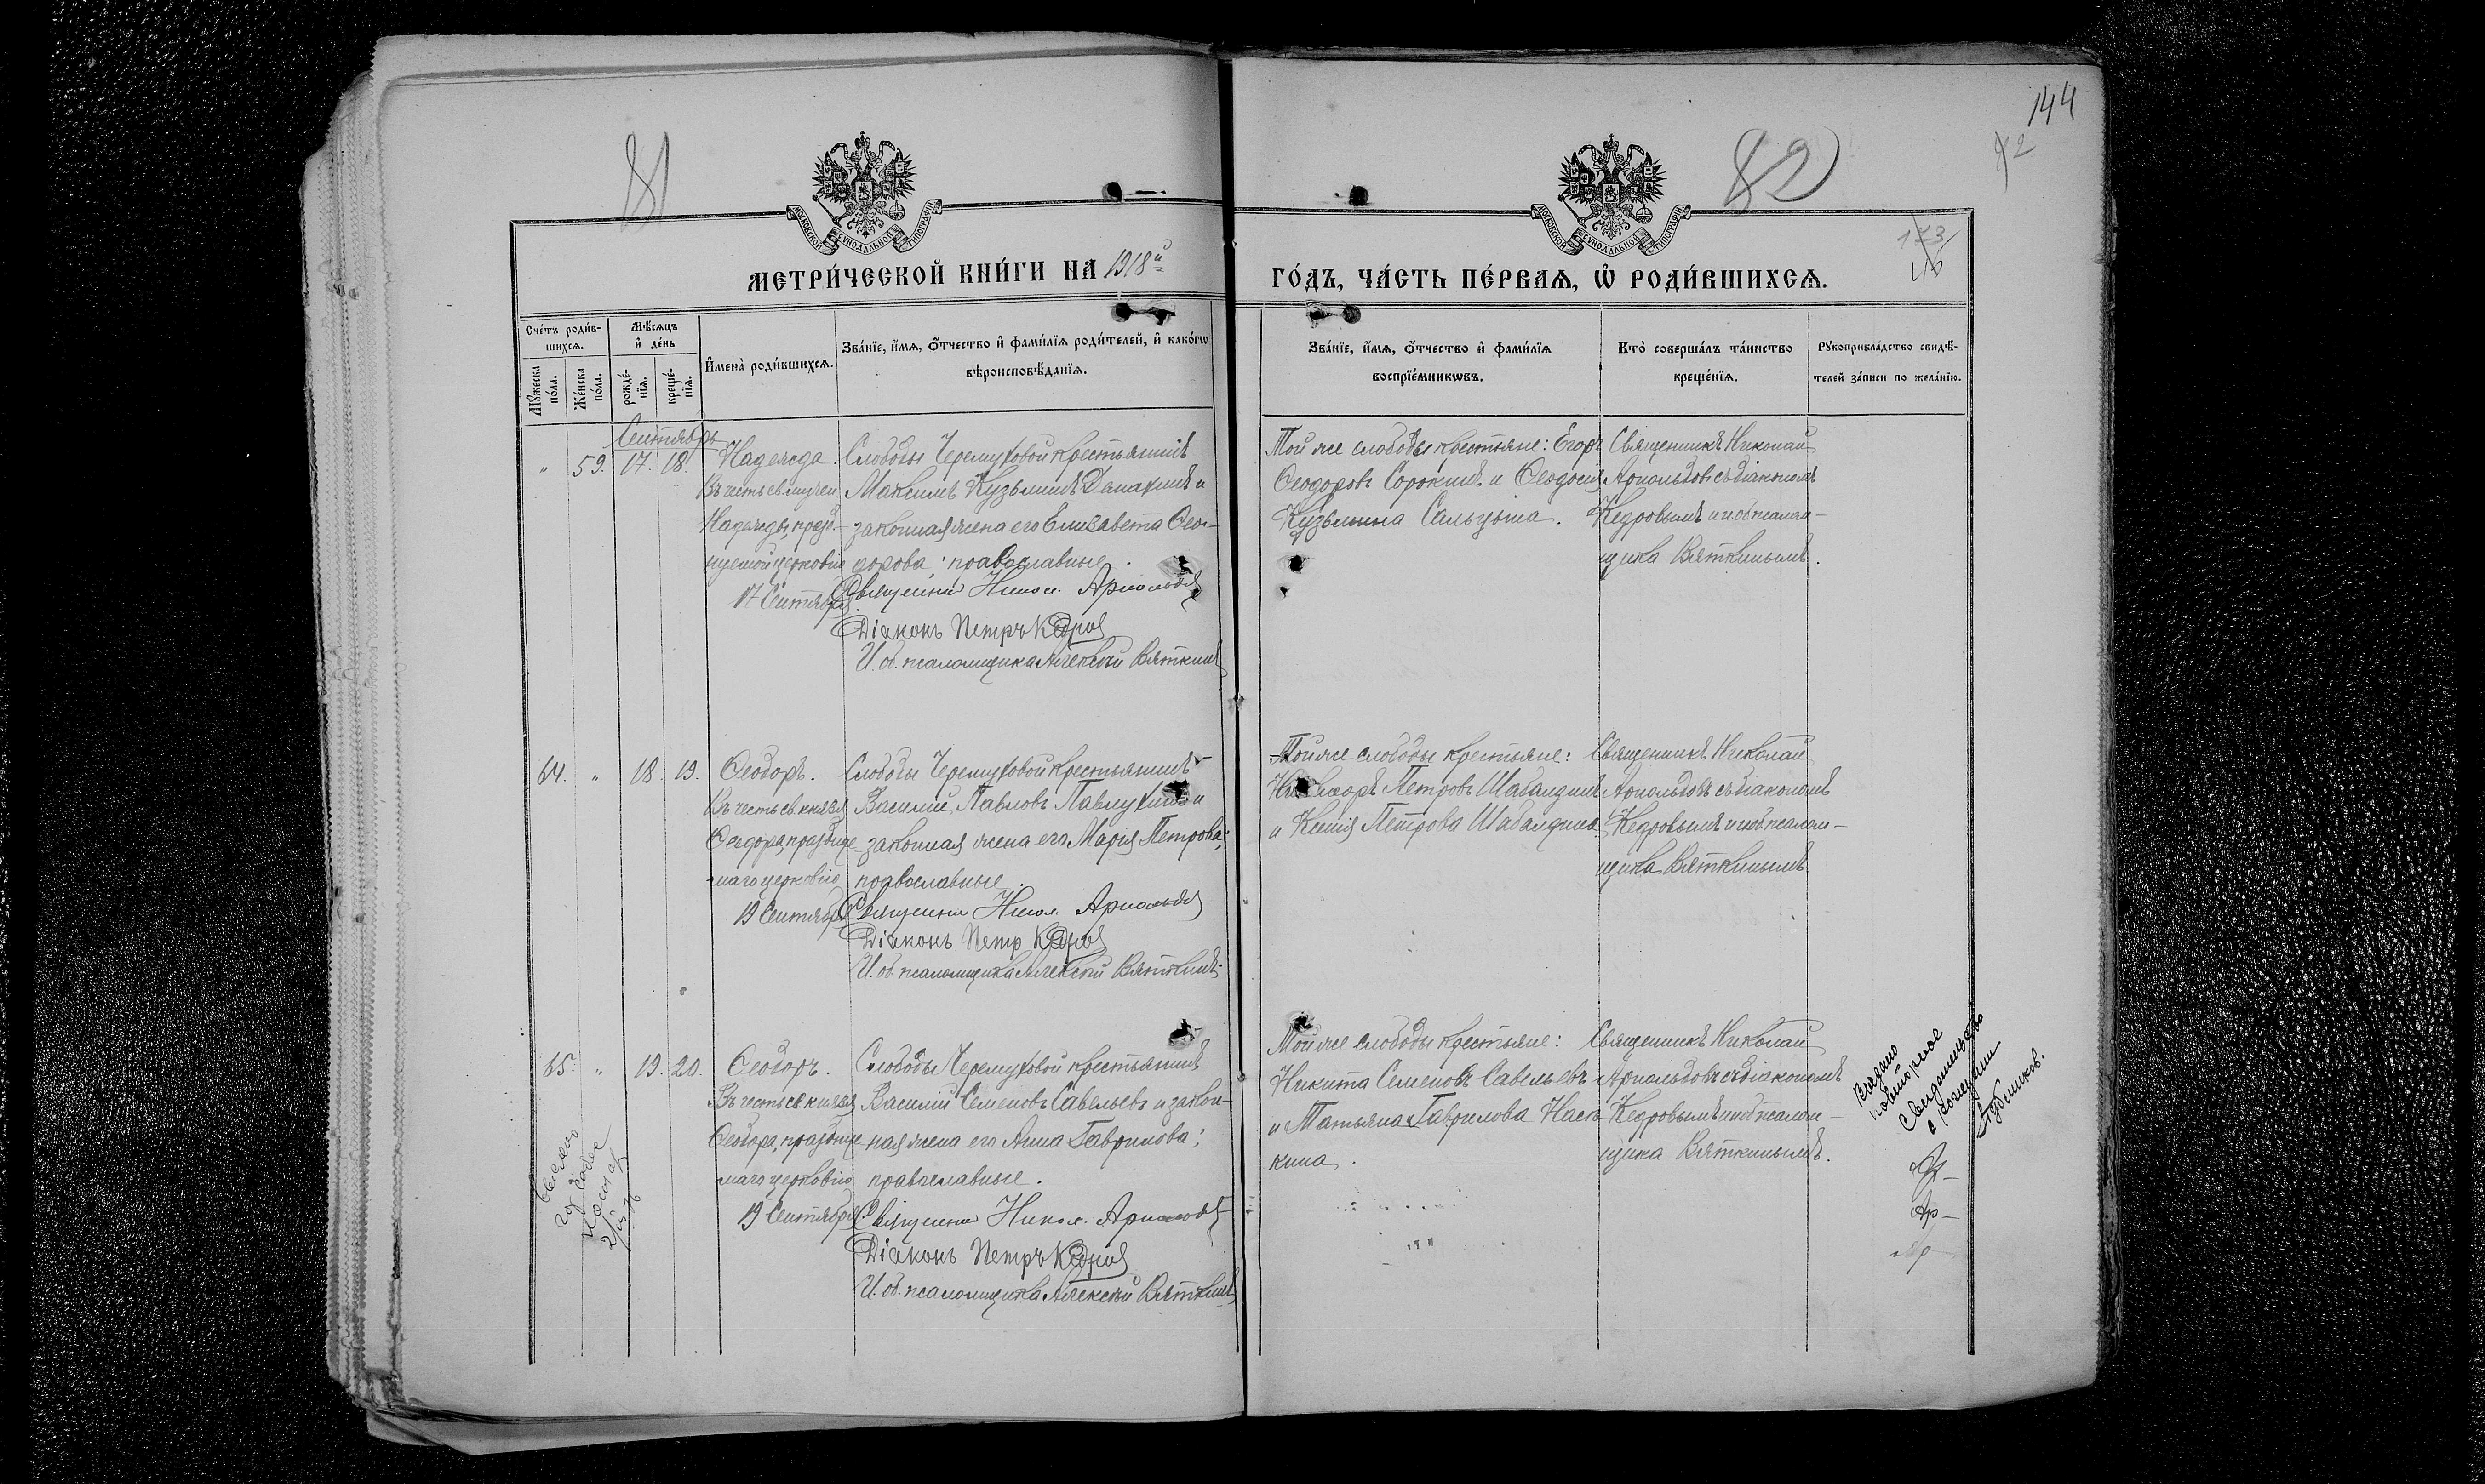 144
81
82
МОСКОВСКОЙ СѴНОДАЛЬНОЙ ТИПОГРАФІИ
МОСКОВСКОЙ СѴНОДАЛЬНОЙ ТИПОГРАФІИ
МЕТРИ́ЧЕСКОЙ КНИ́ГИ НА 1918й
ГО́ДЪ, ЧА́СТЬ ПЕ́РВАЯ, Ѡ҆ РОДИ́ВШИХСѦ.
Сче́тъ роди́в-
шихсѧ.
Мѣ́сѧцъ
и҆ де́нь
Мꙋ́жеска по́ла.
Же́нска по́ла.
рожде́-нїѧ.
креще́-нїѧ.
И҆мена̀ роди́вшихсѧ.
Зва́нїе, и҆́мѧ, ѻ҆́тчество и҆ фами́лїѧ роди́телей, и҆ како́гѡ
вѣроисповѣ́данїѧ.
Зва́нїе, и҆́мѧ, ѻ҆́тчество и҆ фами́лїѧ
воспрїе́мникѡвъ.
Кто̀ соверша́лъ та́инство
креще́нїѧ.
Рꙋкоприкла́дство свидѣ́-
телей за́писи по жела́нїю.
Сентябрь
" 59. 17. 18. Надежда.
Въ честь св. мучен.
Надежды, празд-
нуемой церковію
17 Сентября
Слободы Черемуховой крестьянинъ
Максимъ Кузьминъ и
законная жена его Елизавета Ѳео-
дорова; православные.
Священникъ Никол. Арнольдовъ
Діаконъ Петръ Кедровъ
И. об. псаломщика Алексѣй Вяткинъ
Той же слободы крестьяне: Егоръ
Ѳеодоровъ Сорокинъ и Ѳеодосія
Кузьмина.
Священникъ Николай
Арнольдовъ съ діакономъ
Кедровымъ и и об псалом-
щика Вяткинымъ.
64. " 18. 19. Ѳеодоръ.
Въ честь св. князя
Ѳеодора, празднуе-
маго церковію
19 Сентября
Слободы Черемуховой крестьянинъ
Василій Павловъ Павлухинъ и
законная жена его Марія Петрова;
православные.
Священникъ Никол. Арнольдовъ
Діаконъ Петр Кедровъ
И. об. псаломщика Алексѣй Вяткинъ
Той же слободы крестьяне:
Петровъ Шабалдинъ
и Ксенія Петрова Шабалдина.
Священникъ Николай
Арнольдовъ съ діакономъ
Кедровымъ и и об псалом-
щика Вяткинымъ.
65. " 19. 20. Ѳеодоръ.
Въ честь св. князя
Ѳеодора, празднуе-
маго церковію
19 Сентября
Слободы Черемуховой крестьянинъ
Василій Семеновъ Савельевъ и закон-
ная жена его Анна Гаврилова;
православные.
Священникъ Никол. Арнольдовъ
Діаконъ Петръ Кедровъ
И. об. псаломщика Алексѣй Вяткинъ
Той же слободы крестьяне:
Никита Семеновъ Савельевъ
и Татьяна Гаврилова
кина.
Священникъ Николай
Арнольдовъ съ діакономъ
Кедровымъ и и об псалом-
щика Вяткинымъ.
повторное